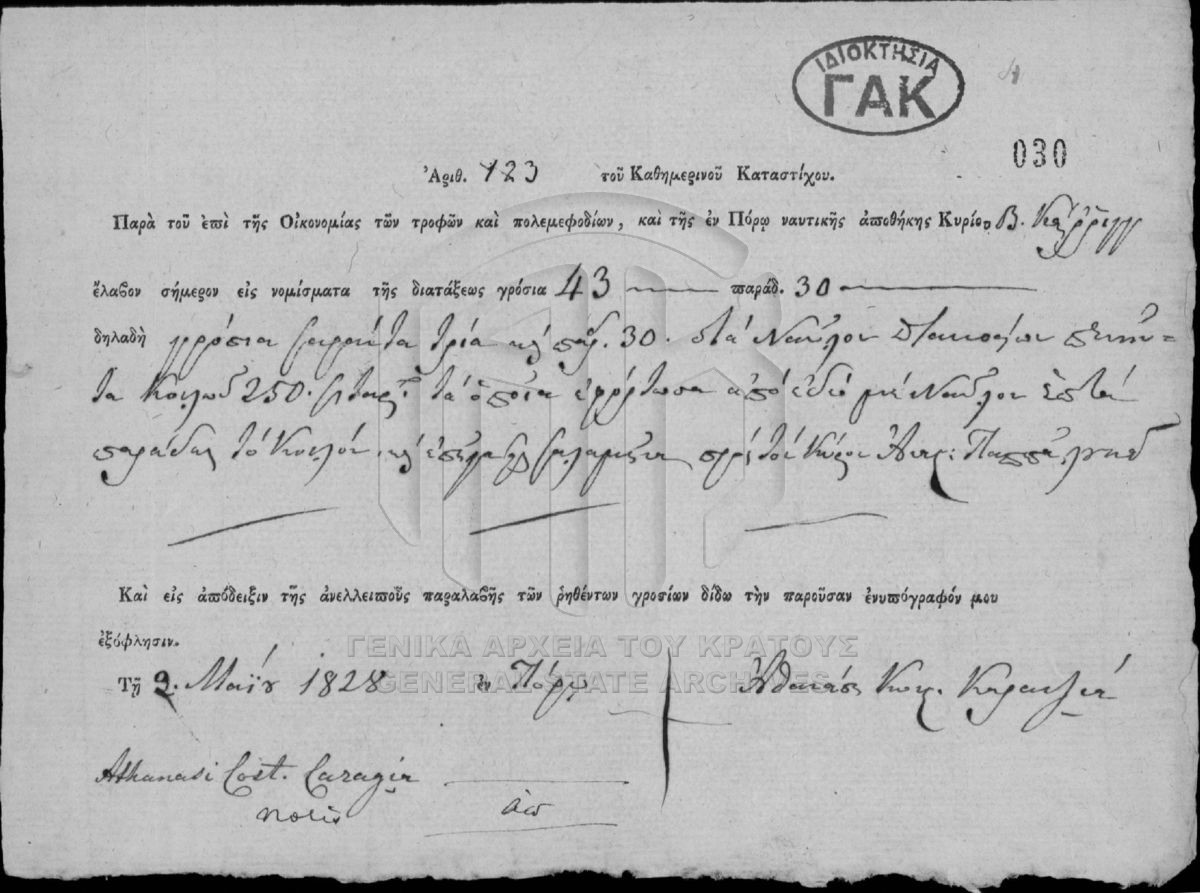 ΙΔΙΟΚΤΗΣΙΑ
ΓΑΚ
030
Ἀριθ. 123 τοῦ Καθημερινοῦ Καταστίχου.
Παρὰ τοῦ ἐπὶ τῆς Οἰκονομίας τῶν τροφῶν καὶ πολεμεφοδίων, καὶ τῆς ἐν Πόρῳ ναυτικῆς ἀποθήκης Κυρίου Β.
ἔλαβον σήμερον εἰς νομίσματα τῆς διατάξεως γρόσια 43 παράδ. 30
δηλαδὴ γρόσια σαράντα τρία κὶ παρ. 30. διὰ Ναῦλον διακοσίων πενῆν-
τα Κοιλῶν 250. σιταρ. τὰ ὁποῖα ἐφόρτωσα ἀπὸ ἐδῶ μὲ Ναῦλον ἑπτὰ
παράδες τὸ Κοιλόν, πρὸς τὸν Κύριον
Καὶ εἰς ἀπόδειξιν τῆς ἀνελλειποῦς παραλαβῆς τῶν ῥηθέντων γροσίων δίδω τὴν παροῦσαν ἐνυπόγραφόν μου
ἐξόφλησιν.
Τῇ 2. Μαΐου 1828 ἐν Πόρῳ Ἀθανάσις Κωσ. Καραντζιά
Athanasi Cost. Caragia
ΓΕΝΙΚΑ ΑΡΧΕΙΑ ΤΟΥ ΚΡΑΤΟΥΣ
GENERAL STATE ARCHIVES